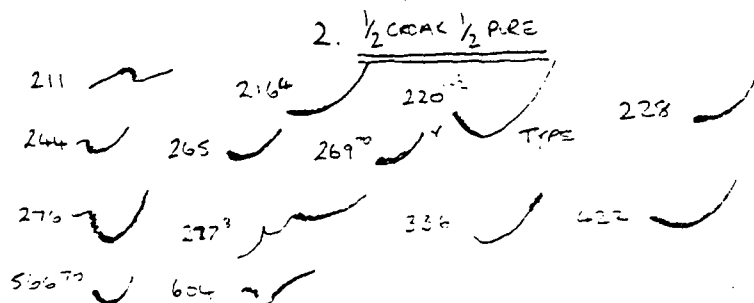 2. 1/2 CROAK 1/2 PURE
211 216⁴ 220 228
244 265 269ᵀᴼ TYPE
276 287³ 336 422
566ᵀᴼ 604